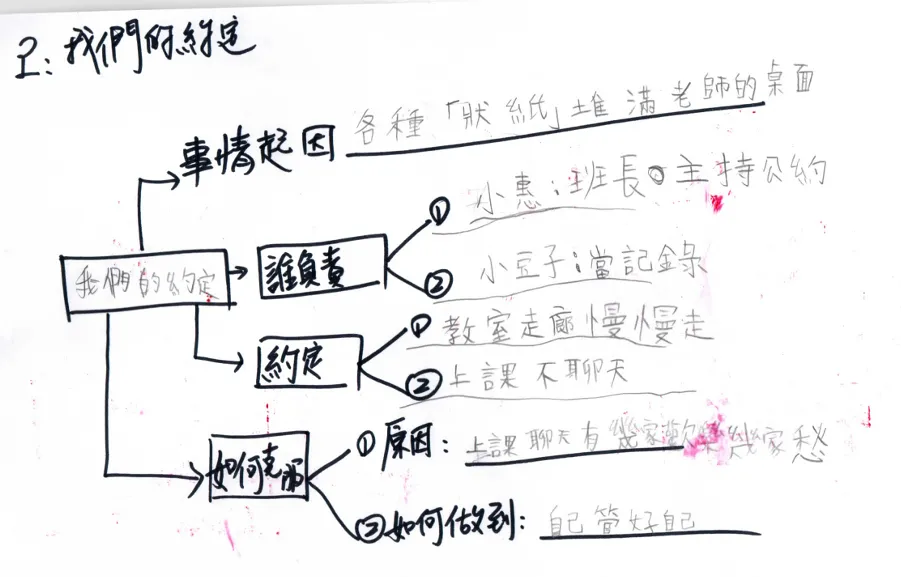 2:我們的約定
事情起因 各種「狀紙」堆滿老師的桌面
① 小惠:班長。主持公約
我們的約定
誰負責
② 小豆子:當記錄
① 教室走廊慢慢走
約定
② 上課不聊天
① 原因: 上課聊天有幾家歡樂幾家愁
如何克服
② 如何做到: 自己管好自己